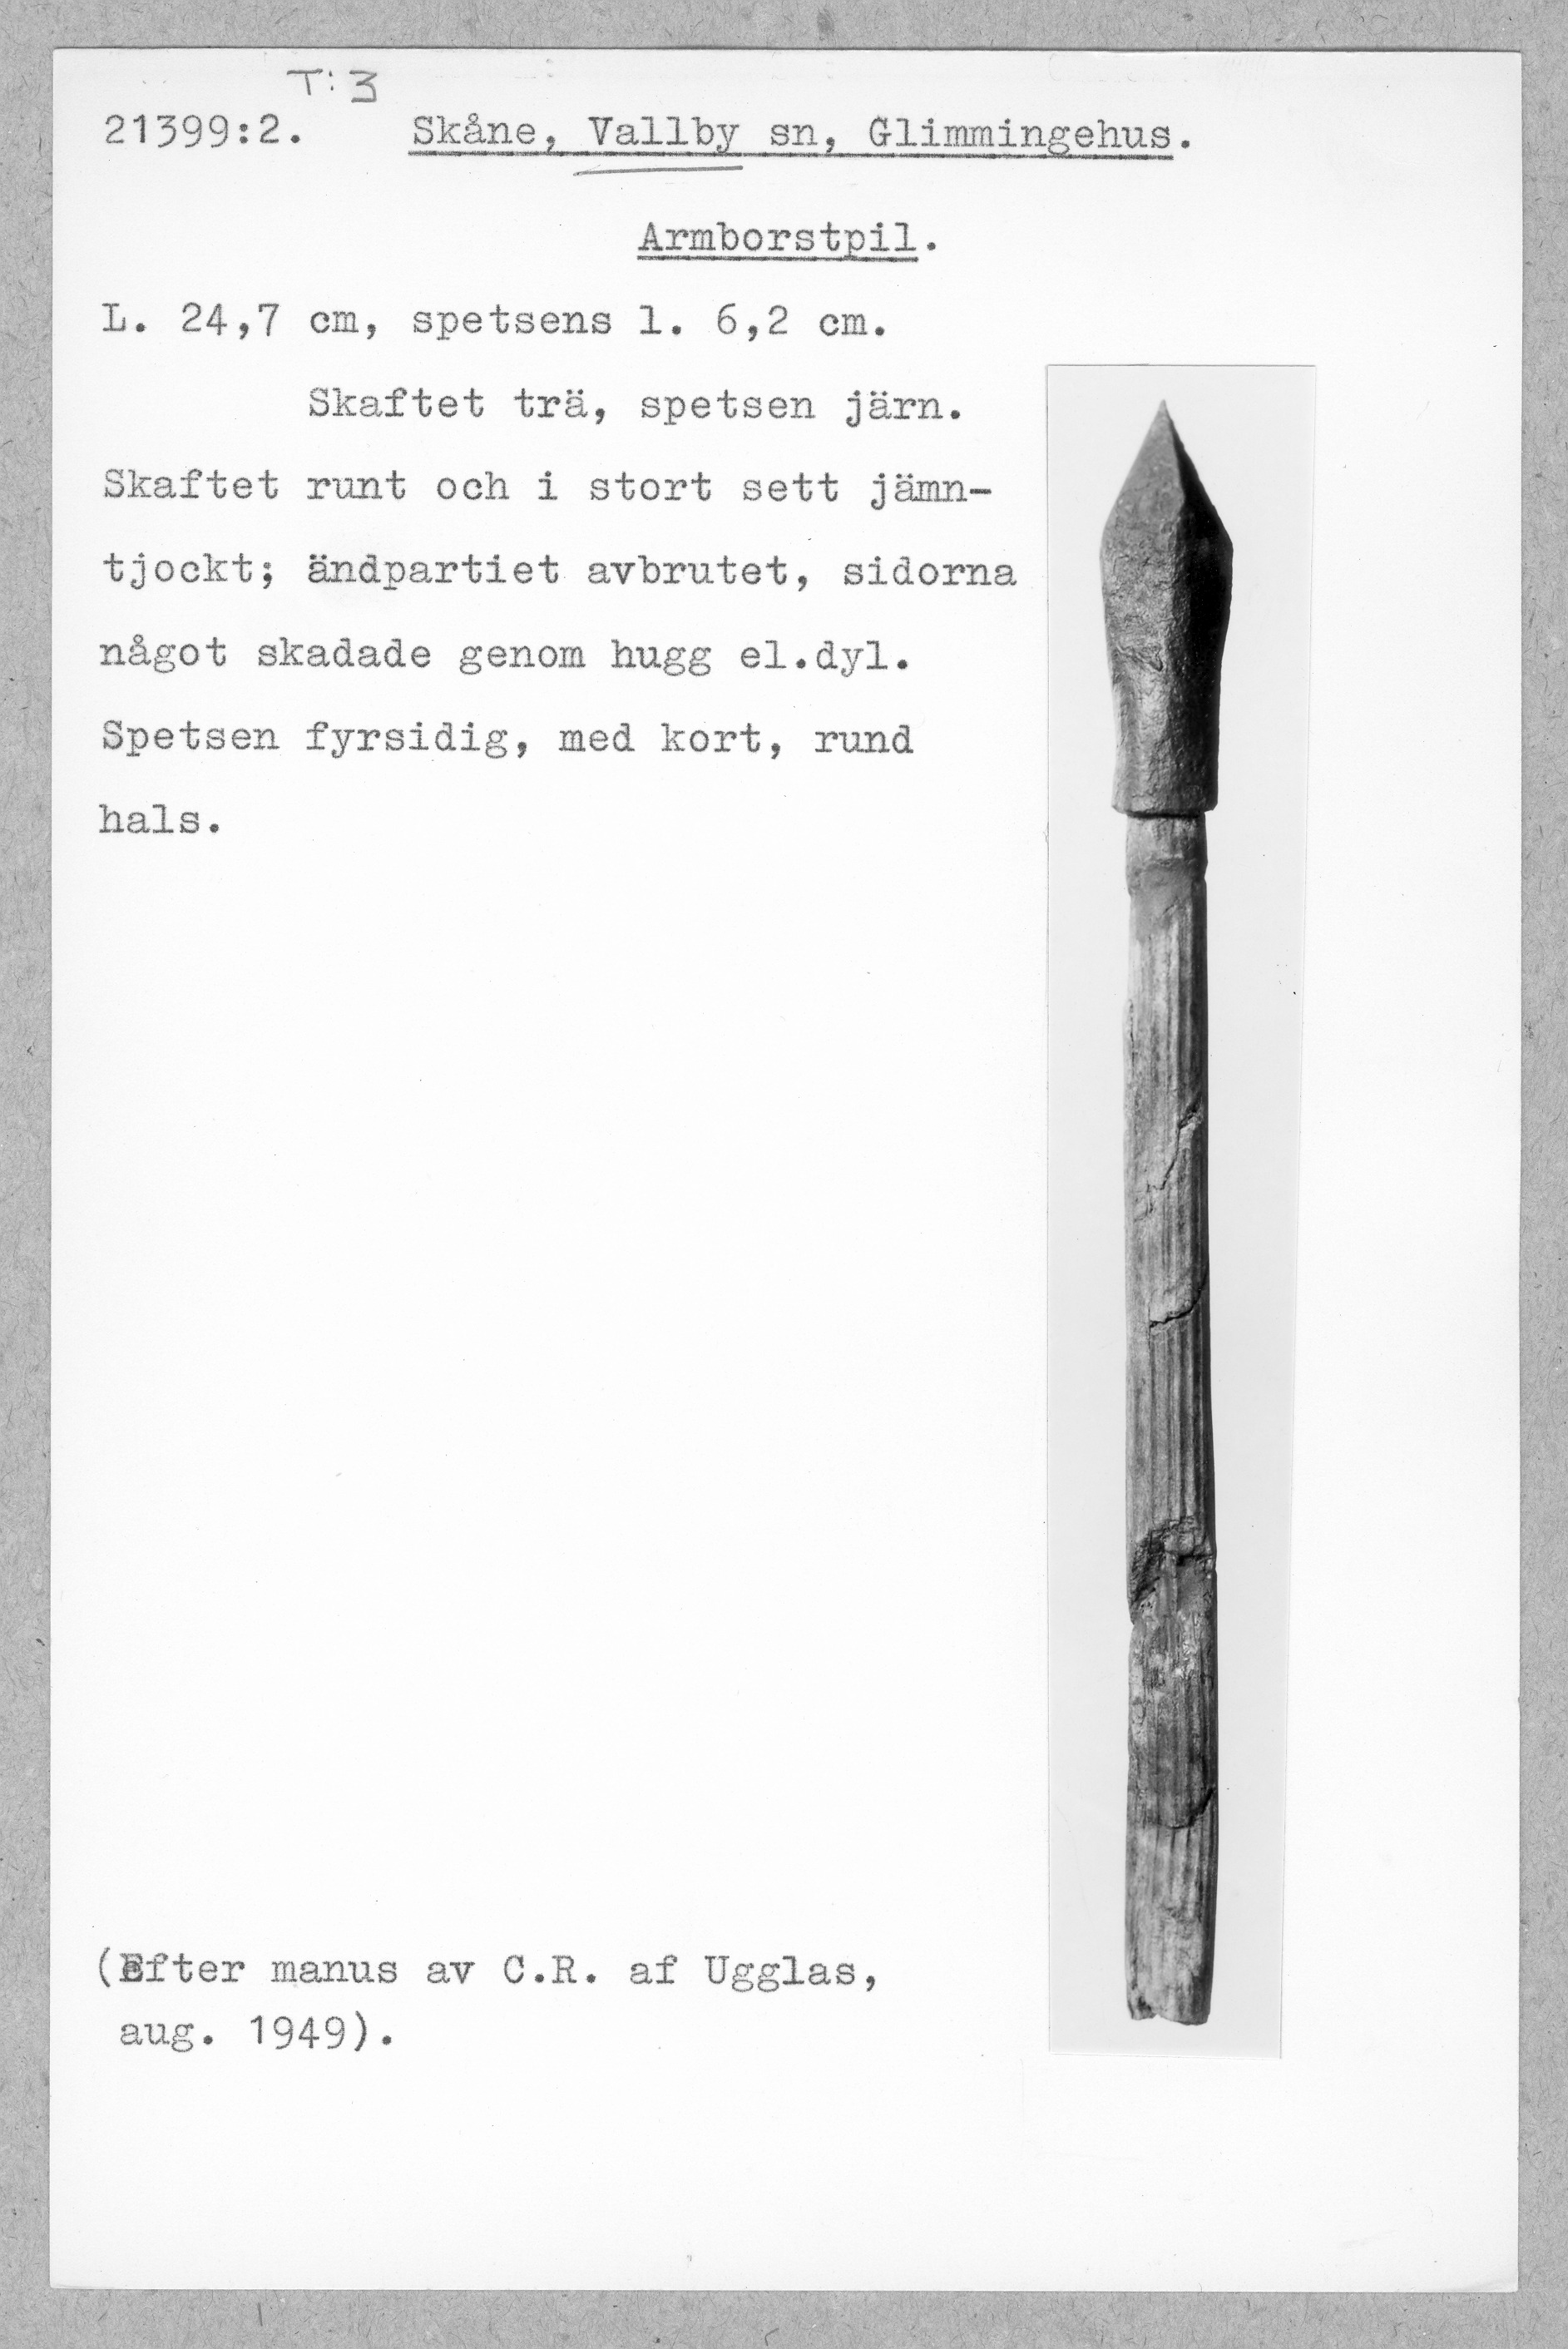 T:3
21399:2. Skåne, Vallby sn, Glimmingehus.
Armborstpil.
L. 24,7 cm, spetsens l. 6,2 cm.
Skaftet trä, spetsen järn.
Skaftet runt och i stort sett jämn-
tjockt; ändpartiet avbrutet, sidorna
något skadade genom hugg el.dyl.
Spetsen fyrsidig, med kort, rund
hals.
(Efter manus av C.R. af Ugglas,
aug. 1949).